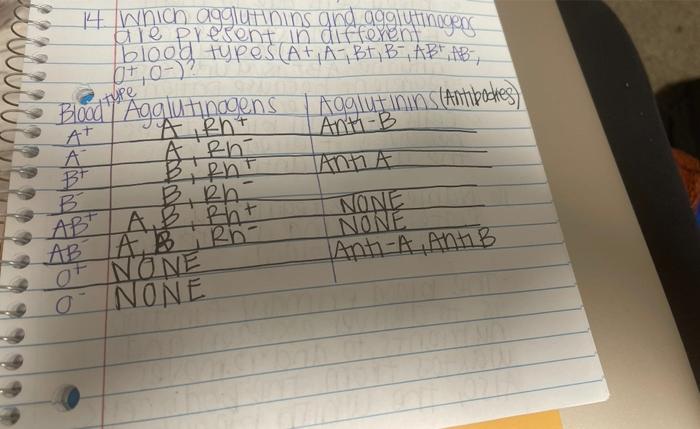 14. Which agglutinins and agglutinogens
are present in different
blood types (A+, A-, B+, B-, AB+, AB-,
O+, O-)?
Blood type Agglutinogens Agglutinins (Antibodies)
A+ A, Rh+ Anti-B
A- A, Rh-
B+ B, Rh+ Anti A
B- B, Rh-
AB+ A, B, Rh+ NONE
AB- A, B, Rh- NONE
O+ NONE Anti-A, Anti B
O- NONE